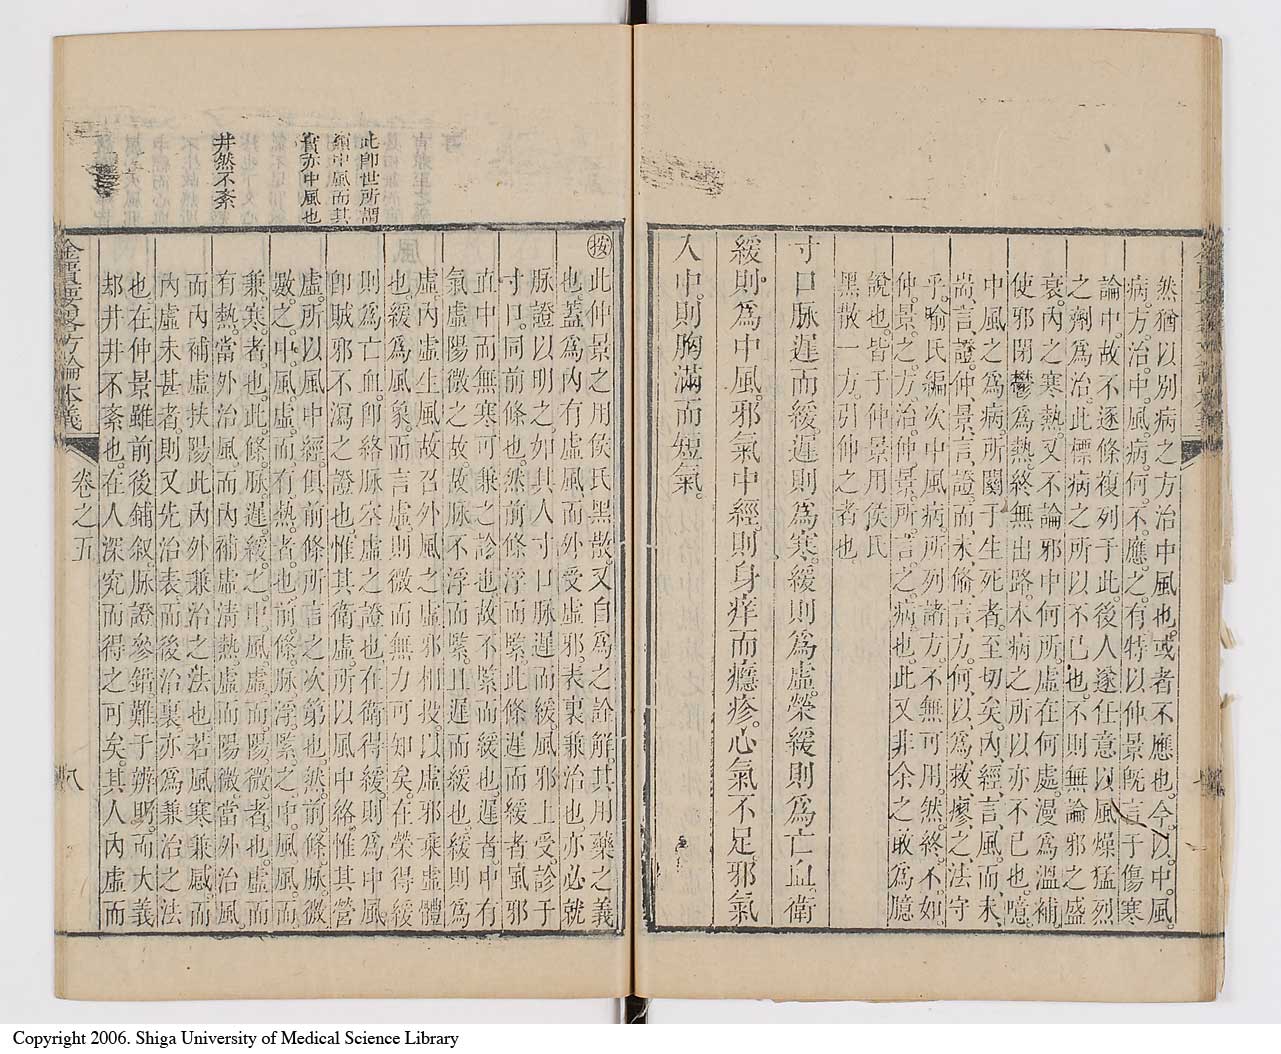 然猶以別病之方治中風也或者不應也今以中風
病方治中風病何不應之有特以仲景旣言于傷寒
論中故不逐條複列于此後人遂任意以風燥猛烈
之劑爲治此標病之所以不已也不則無論邪之盛
衰內之寒熱又不論邪中何所虛在何處漫爲溫補
使邪閉鬱爲熱終無出路本病之所以亦不已也噫
中風之爲病所關于生死者至切矣內經言風而未
嵩言證仲景言證而未條言方何以爲救療之法守
乎喻氏編次中風病所列諸方不無可用然終不如
仲景之方治仲景所言之病也此又非余之敢爲臆
說也皆于仲景用侯氏
黑散一方引伸之者也
寸口脉遲而緩遲則爲寒緩則爲虛榮緩則爲亡血衛
緩則爲中風邪氣中經則身痒而癮疹心氣不足邪氣
入中則胸滿而短氣
此卽世所謂
類中風而其
實亦中風也
井然不紊
按此仲景之用侯氏黑散又自爲之詮解其用藥之義
也蓋爲內有虛風而外受虛邪表裏兼治也亦必就
脉證以明之如其人寸口脉遲而緩風邪上受診于
寸口同前條也然前條浮而緊此條遲而緩者風邪
直中而無寒可兼之診也故不緊而緩也遲者中有
氣虛陽微之故故脉不浮而緊且遲而緩也緩則爲
虛內虛生風故召外風之虛邪相投以虛邪乘虛體
也緩爲風象而言虛則微而無力可知矣在榮得緩
則爲亡血卽絡脉空虛之證也在衛得緩則爲中風
卽賊邪不瀉之證也惟其衛虛所以風中絡惟其營
虛所以風中經俱前條所言之次第也然前條脉微
數之中風虛而有熱者也前條脉浮緊之中風風而
兼寒者也此條脉遲緩之中風虛而陽微者也虛而
有熱當外治風而內補虛淸熱虛而陽微當外治風
而內補虛扶陽此內外兼治之法也若風寒兼感而
內虛未甚者則又先治表而後治裏亦爲兼治之法
也在仲景雖前後鋪叙脉證參錯難于辨晣而大義
却井井不紊也在人深究而得之可矣其人內虛而
金匱要畧方論本義
卷之五
八
Copyright 2006. Shiga University of Medical Science Library